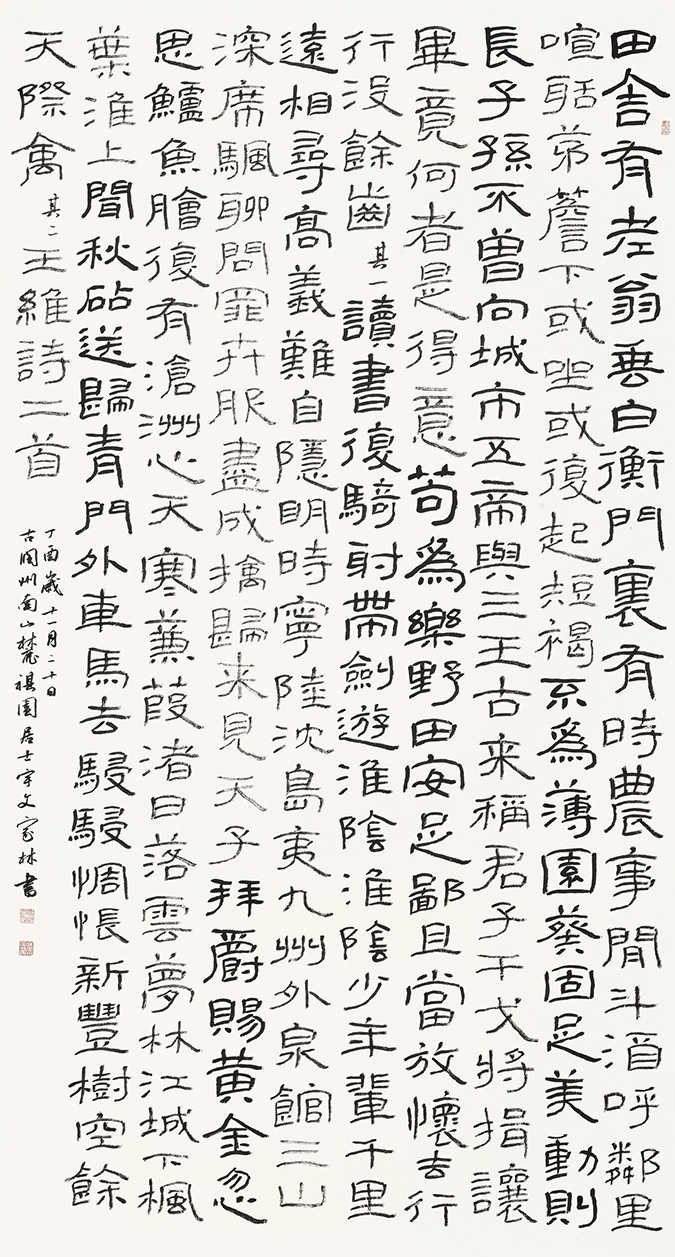 田舍有老翁垂白衡門裏有時農事閒斗酒呼鄰里
喧聒茅簷下或坐或復起短褐不爲薄園葵固足美動則
長子孫不曾向城市五帝與三王古來稱君子干戈將揖讓
畢竟何者是得意苟爲樂野田安足鄙且當放懷去行
行没餘齒其一讀書復騎射帶劍遊淮陰淮陰少年輩千里
遠相尋高義難自隱明時寧陸沈島夷九州外泉館三山
深席颿聊問罪卉服盡成擒歸来見天子拜爵賜黄金忽
思鱸魚膾復有滄州心天寒蒹葭渚日落雲夢林江城下楓
葉淮上聞秋砧送歸青門外車馬去駸駸惆悵新豐樹空餘
天際禽其二王維詩二首
丁酉歲十一月二十日
古閬州南山麓祺園居士宇文家林書